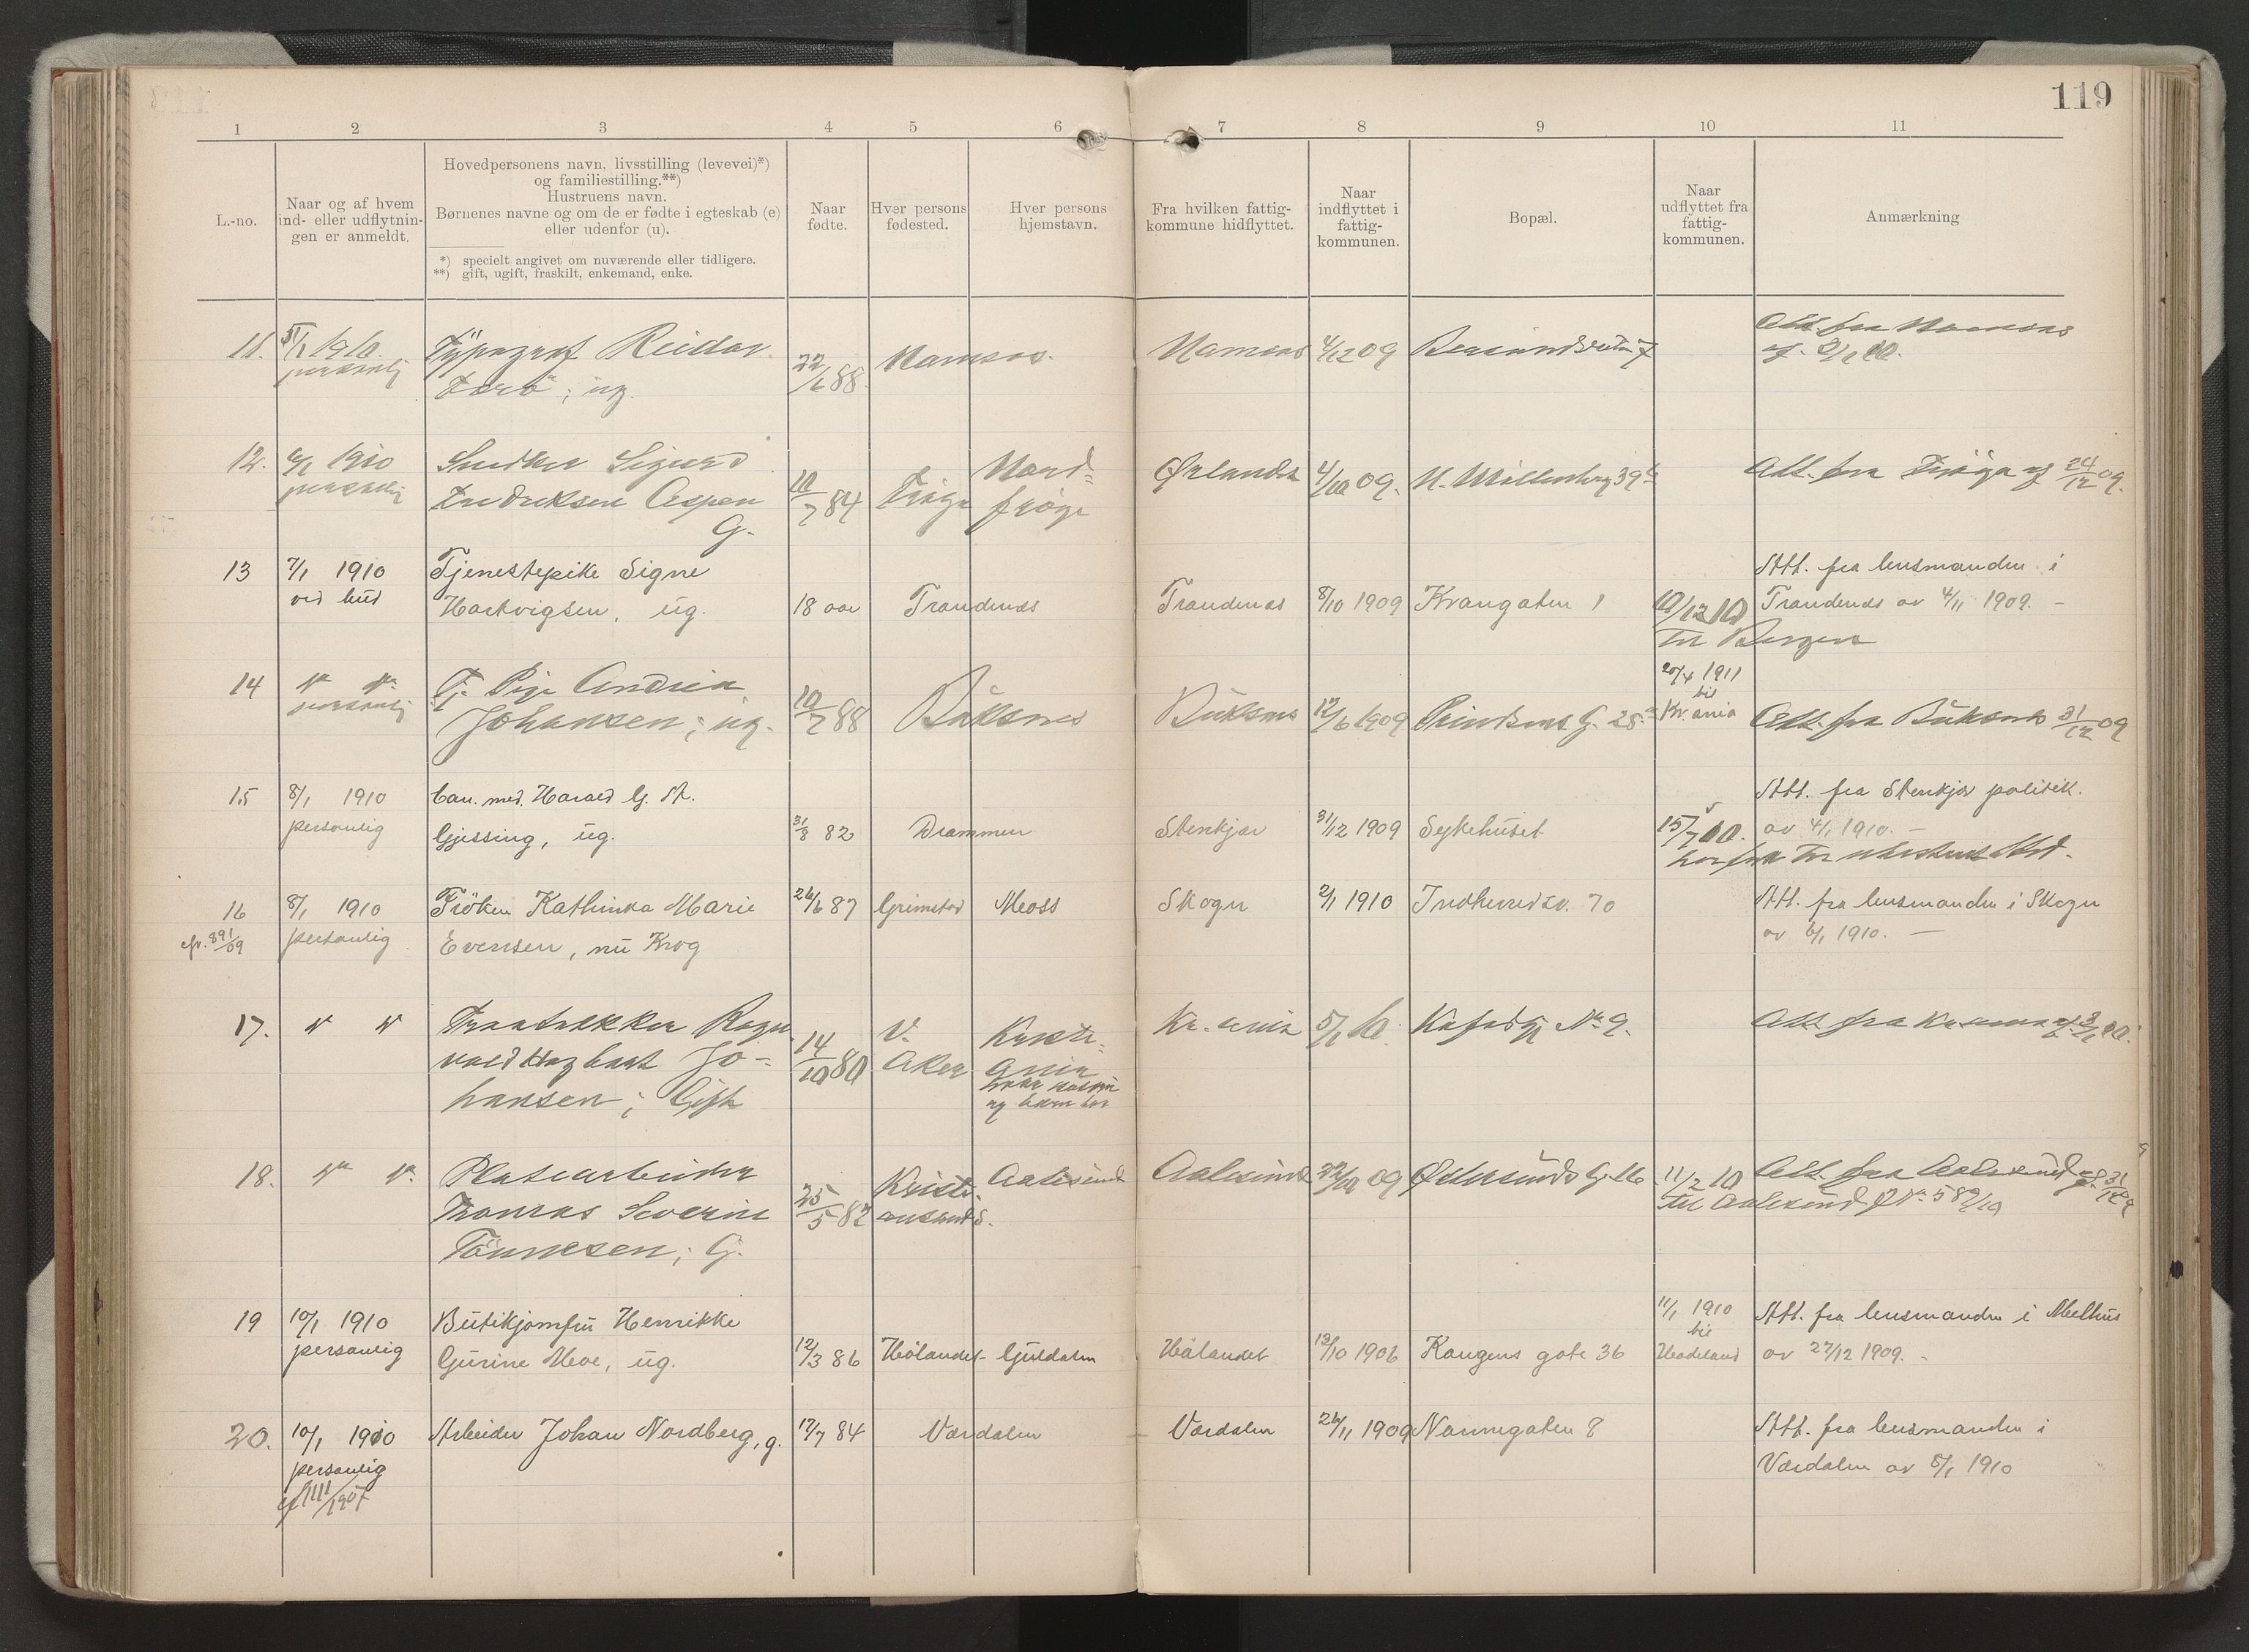 119
1 2 3 4 5 6 7 8 9 10 11
L.-no.
Naar og af hvem
ind- eller udflytnin-
gen er anmeldt.
Hovedpersonens navn, livsstilling (levevei)*)
og familiestilling.**)
Hustruens navn.
Børnenes navne og om de er fødte i egteskab (e)
eller udenfor (u).
*) specielt angivet om nuværende eller tidligere.
**) gift, ugift, fraskilt, enkemand, enke.
Naar
fødte.
Hver persons
fødested.
Hver persons
hjemstavn.
Fra hvilken fattig-
kommune hidflyttet.
Naar
indflyttet i
fattig-
kommunen.
Bopæl.
Naar
udflyttet fra
fattig-
kommunen.
Anmærkning
11.
personlig
Typograf Reidar
ug.
22/6 88
Namsos.
Namsos
4/12 09
Att. fra Namsos
12.
6/1 1910
personlig
Snedker Sigurd
Fredriksen Aspen
G.
10/7 84
Frøya
Nord=
frøya
Ørlandet
09.
39
Att. fra Frøya af 24/12 09.
13
7/1 1910
ved bud
Tjenestepike Signe
Hartvigsen, ug.
18 aar
Trondenes
Trondenes
8/10 1909
Krangaten 1
10/12 10
Til Bergen
Att. fra lensmanden i
Trondenes av 4/11 1909. –
14
" "
personlig
Tj. Pige Andrea
Johansen; ug.
10/7 88
Buksnes
Buksnes
12/6 1909
Prindsens G. 25.
20/4 1911
til
Kr.ania
Att. fra Buksnes 31/12 09
15
8/1 1910
personlig
Can. med. Harald G. A.
Gjessing, ug.
31/8 82
Drammen
Stenkjær
31/12 1909
Sykehuset
15/7 10.
Att. fra Stenkjær politik.
av 4/1 1910. –
til ubestemt Sted.
16
cfr. 891/09
8/1 1910
personlig
Frøken Kathinka Marie
Evensen, nu Krog
26/6 87
Grimstad
Moss
Skogn
2/1 1910
Indherredsv. 70
Att. fra lensmanden i Skogn
av 6/1 1910. –
17.
" "
Traatrækker Ragn
vald Hagbart Jo-
hansen; Gift
14/10 80
V.
Aker
Kristi=
ania
hvor
og børn bor
Kr.ania
5/1 10.
No 9.
Att fra Kr.ania
18.
" "
Platearbeider
Thomas Severin
Tønnesen; G.
25/5 82
Kristi-
ansund S.
Aalesund
Aalesund
09
Østersunds G. 16
11/2 10
til Aalesund
Att. fra Aalesund af 31/12 09
19
10/1 1910
personlig
Butikjomfru Henrikke
Gurine Moe, ug.
12/3 86
Hølandet
Guldalen
Hølandet
13/10 1906
Kongens gate 36
11/1 1910
til
Hadeland
Att. fra lensmanden i Melhus
av 27/12 1909. –
20.
10/1 1910
personlig
cf 1111/1907
Arbeider Johan Nordberg, g.
17/7 84
Værdalen
Værdalen
26/11 1909
Nannegaten 8
Att. fra lensmanden i
Værdalen av 8/1 1910